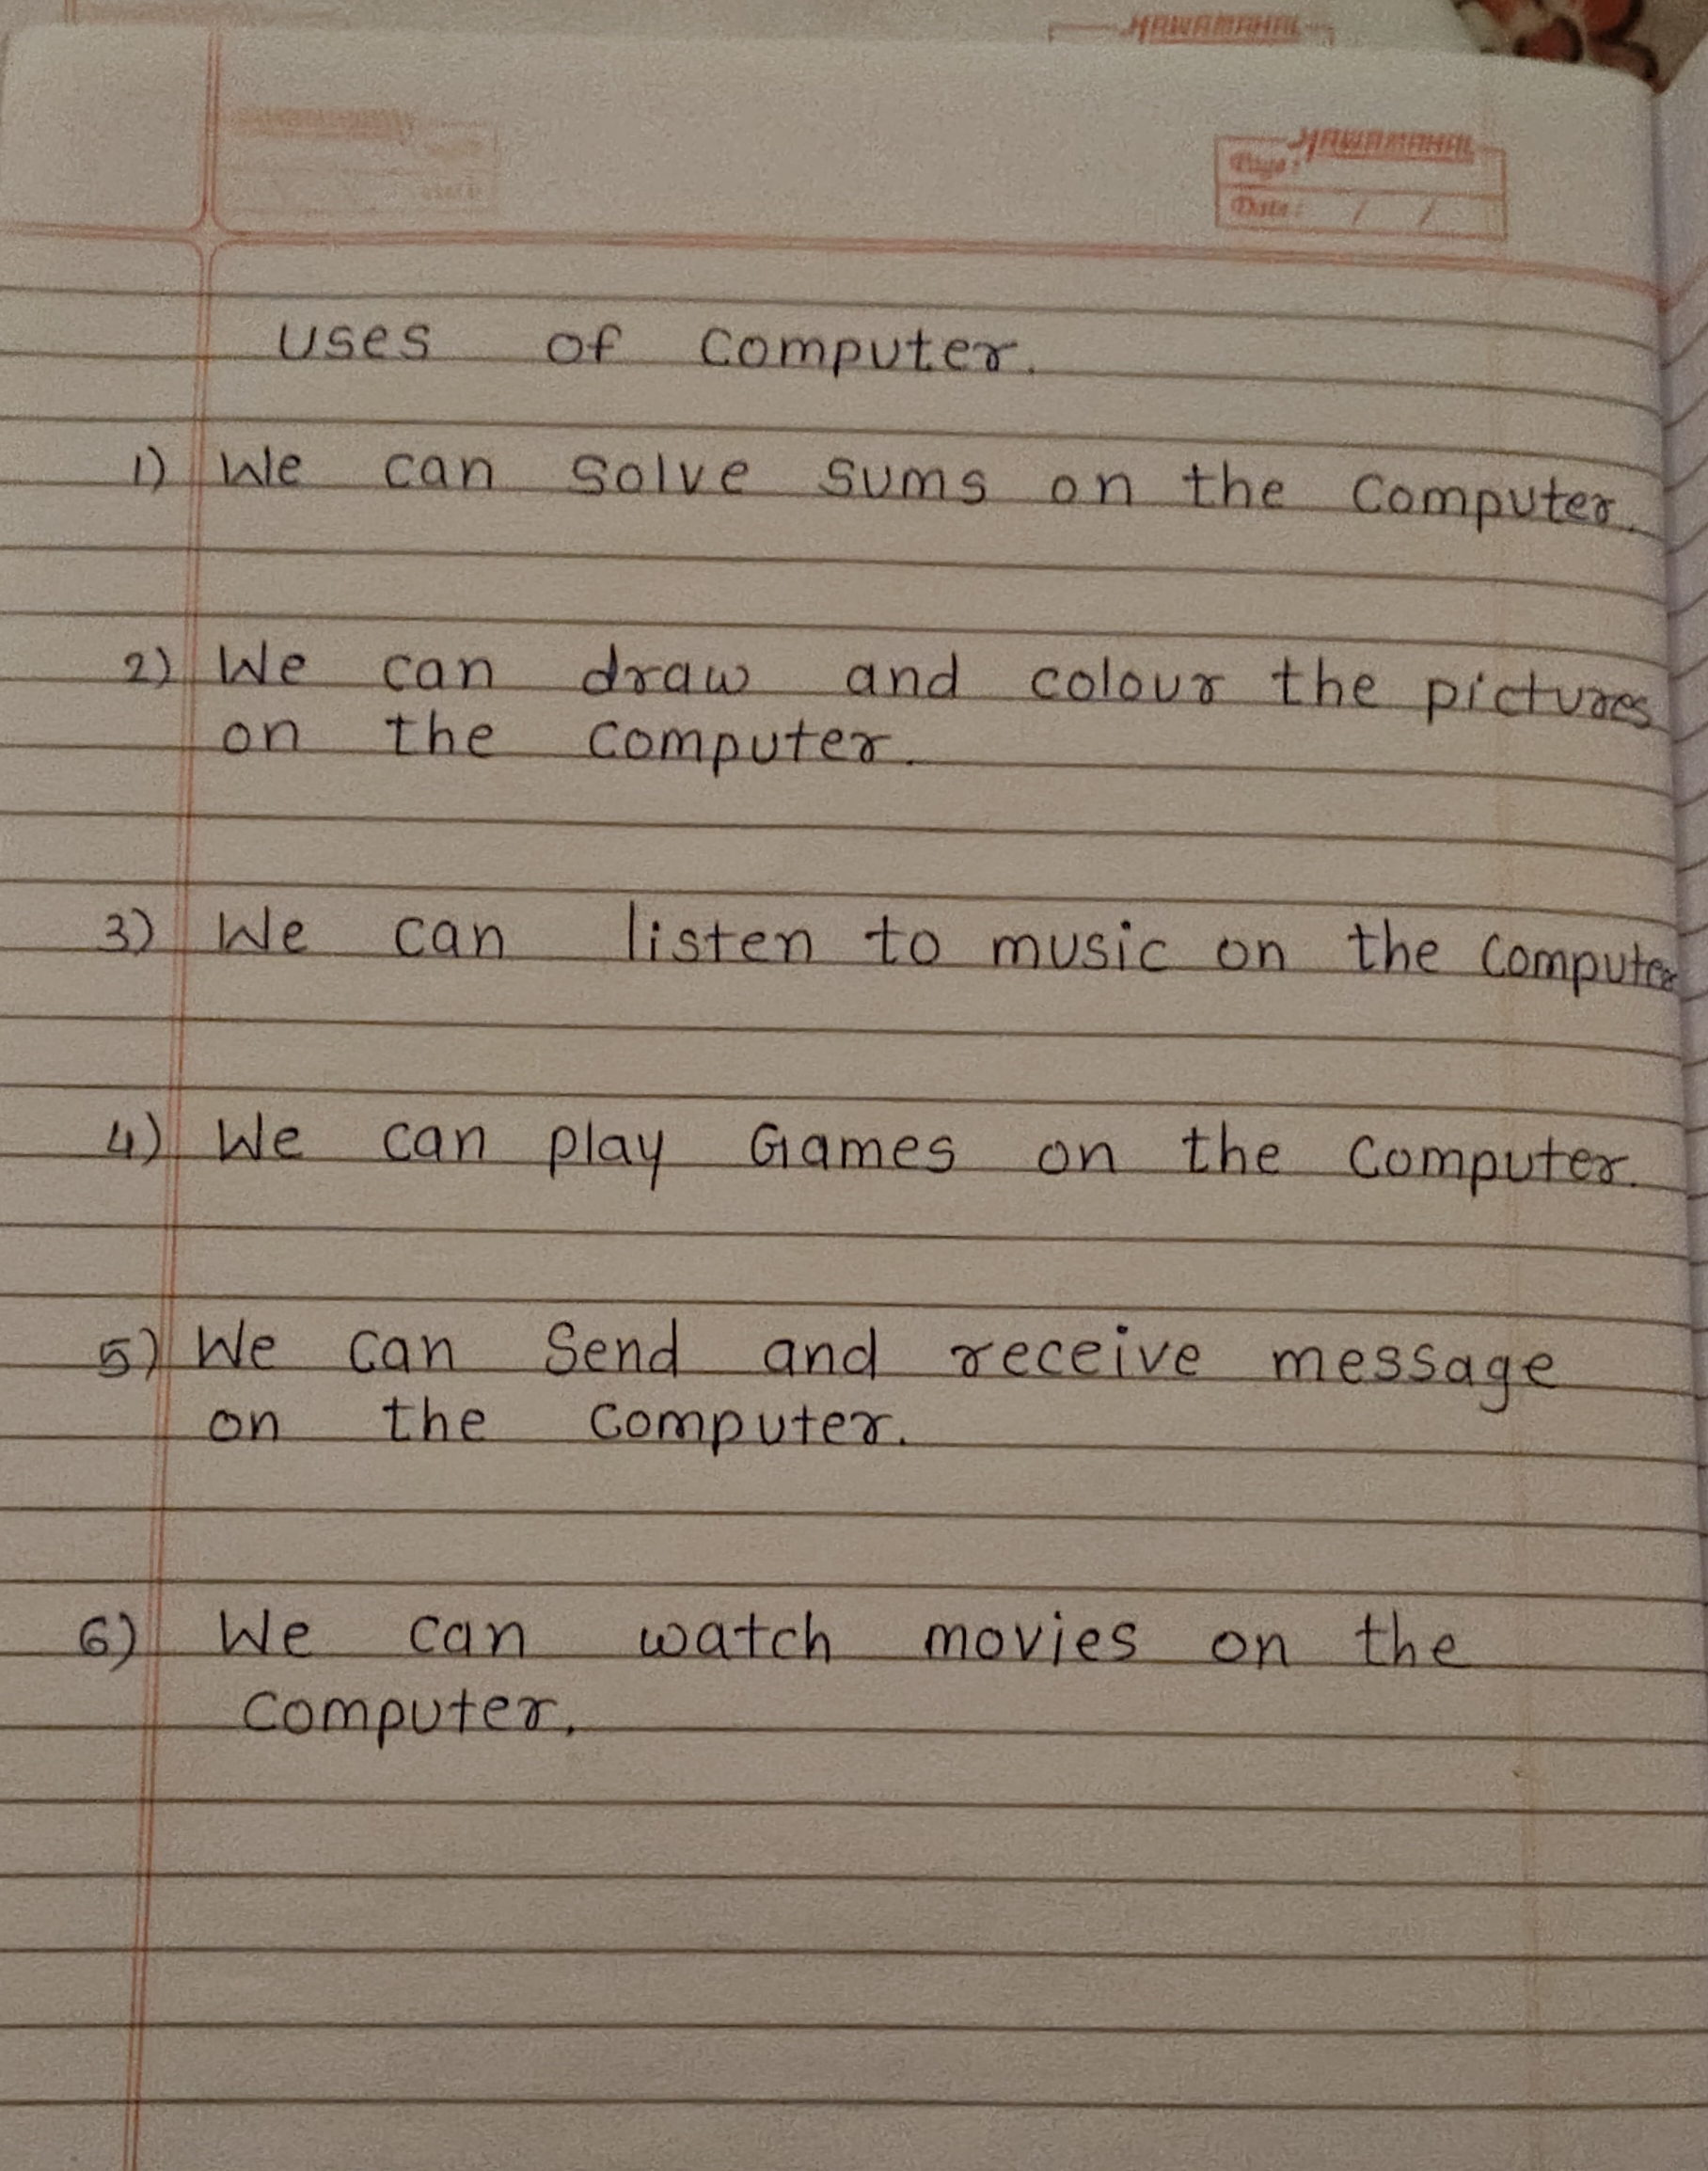 HAWAMAHAL
HAWAMAHAL
Page:
Date: / /
uses of computer.
1) We can solve sums on the Computer.
2) We can draw and colour the pictures
on the computer.
3) We can listen to music on the computer
4) We can play Games on the Computer.
5) We can Send and receive message
on the computer.
6) We can watch movies on the
computer.